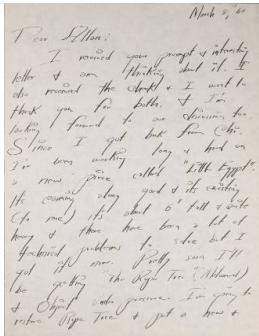 March 8, 60
Dear
I received your prompt & interesting
letter & am thinking about it. I
also received the & I want to
thank you for both. & I'm
looking forward to our discussion too.
Since I got back from Chi.
I've been working long & hard on
a new piece called "Little Egypt".
Its coming along good & its exciting
(to me) its about 6" tall & quite
heavy & there have been a lot of
technical problems to solve but I
got it now. Pretty soon I'll
be getting "The Rype Tree"
& Object under process. I'm going to
restore Rype Tree & put a new &